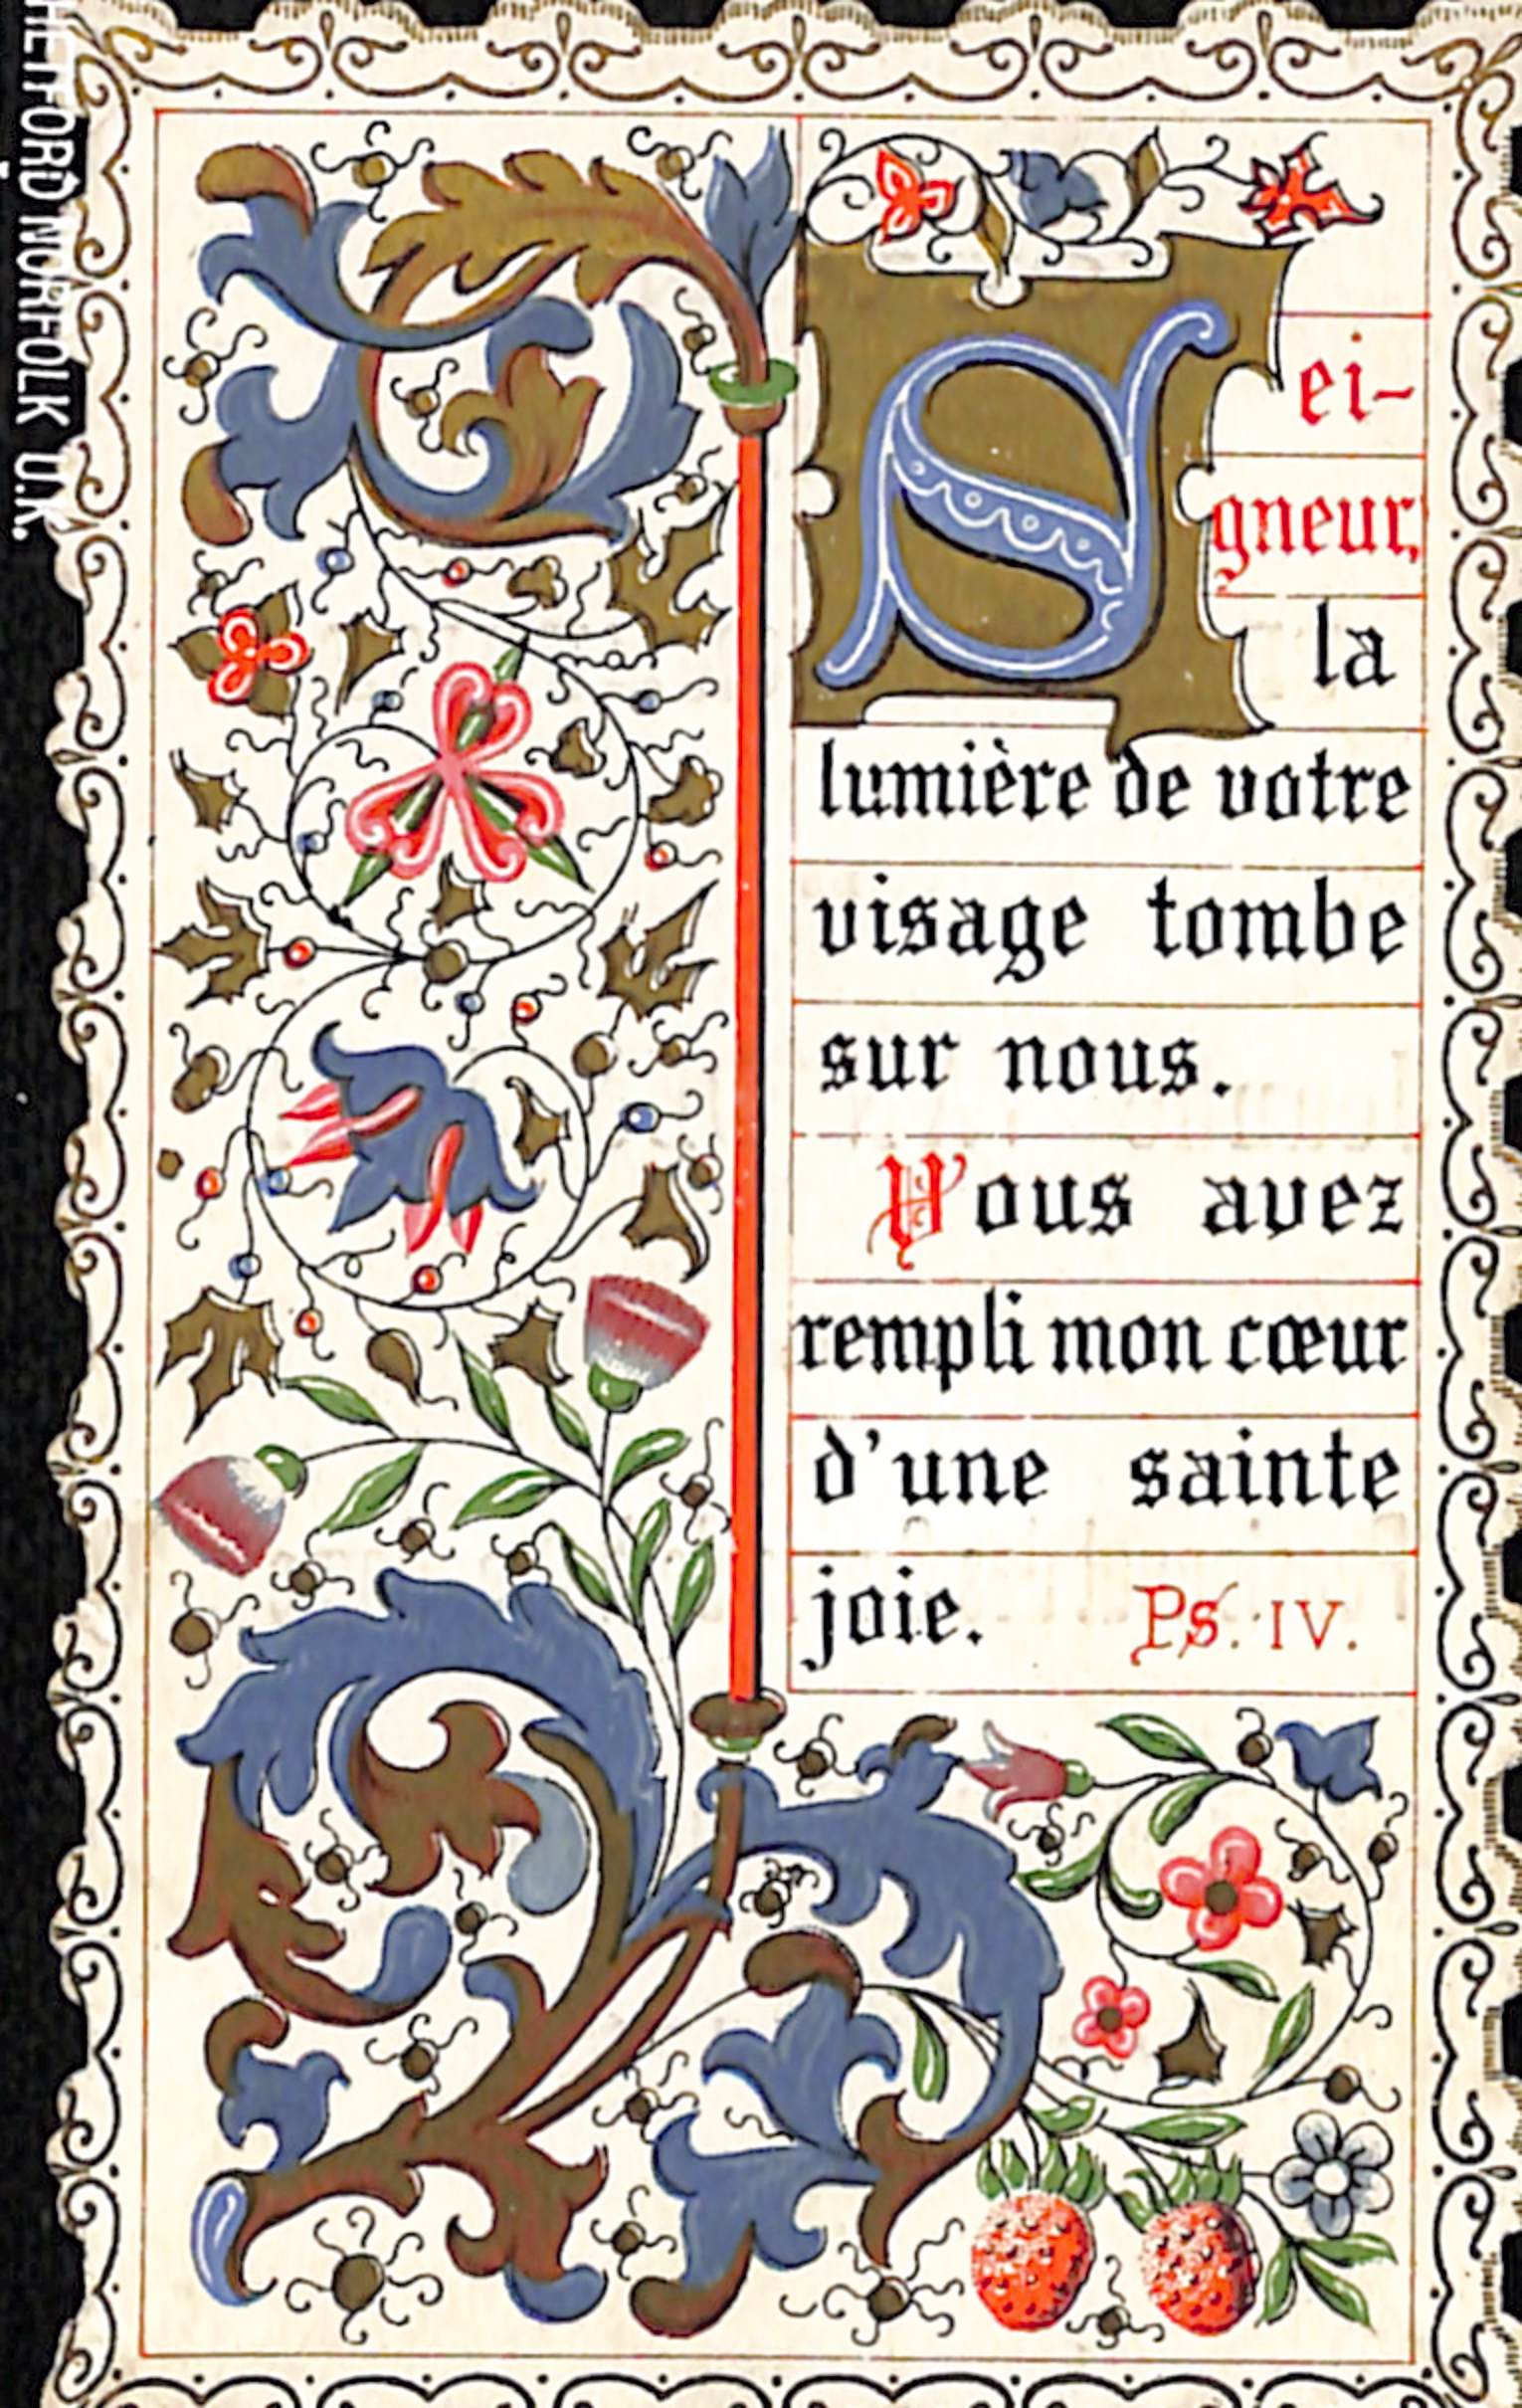 Sei-
gneur,
la
lumière de votre
visage tombe
sur nous.
Vous avez
rempli mon cœur
d'une sainte
joie. Ps. IV.
HETFORD NORFOLK U.K.